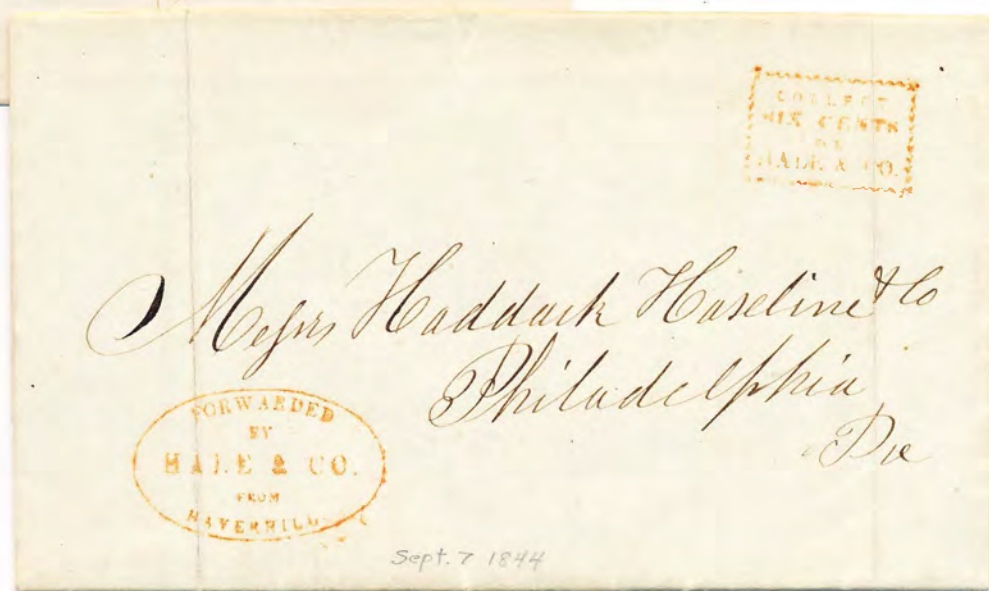 COLLECT
SIX CENTS
FOR
HALE & CO.
Messrs Haddock Haseltine & Co
Philadelphia
Pa
FORWARDED
BY
HALE & CO.
FROM
HAVERHILL
Sept. 7 1844